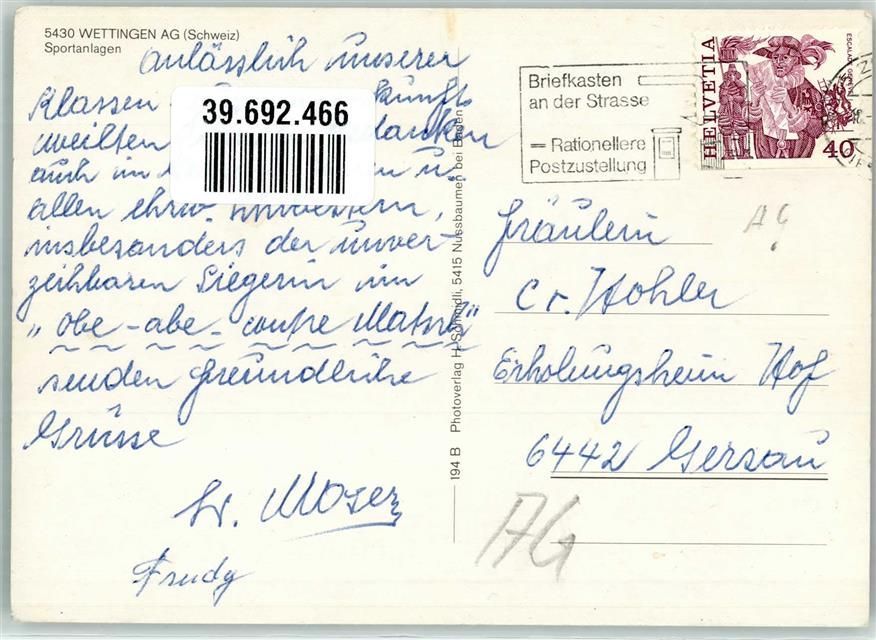 5430 WETTINGEN AG (Schweiz)
Sportanlagen
anlässlich unserer
Klassen
weilten danken
auch im u.
allen ehrw.
insbesonders der unver-
zeihbaren Siegerin im
„obe-abe-contre Matsch"
senden freundliche
Grüsse
Sr. Moser
Trudy
39.692.466
194 B Photoverlag H. Schmidli, 5415 Nussbaumen bei Baden
Briefkasten
an der Strasse
= Rationellere
Postzustellung
HELVETIA
ESCALADE GENÈVE
40
AG
Fräulein
Cr. Hohler
Erholungsheim Hof
6442 Gersau
AG